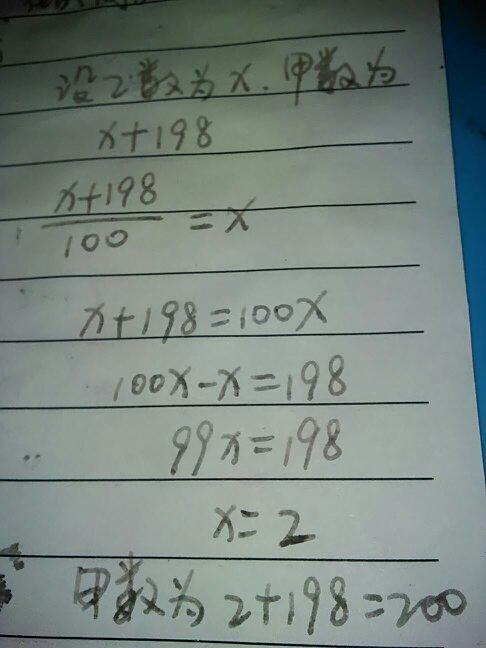 设乙数为x.甲数为
x+198
x+198
100
=x
x+198=100x
100x-x=198
99x=198
x=2
甲数为2+198=200